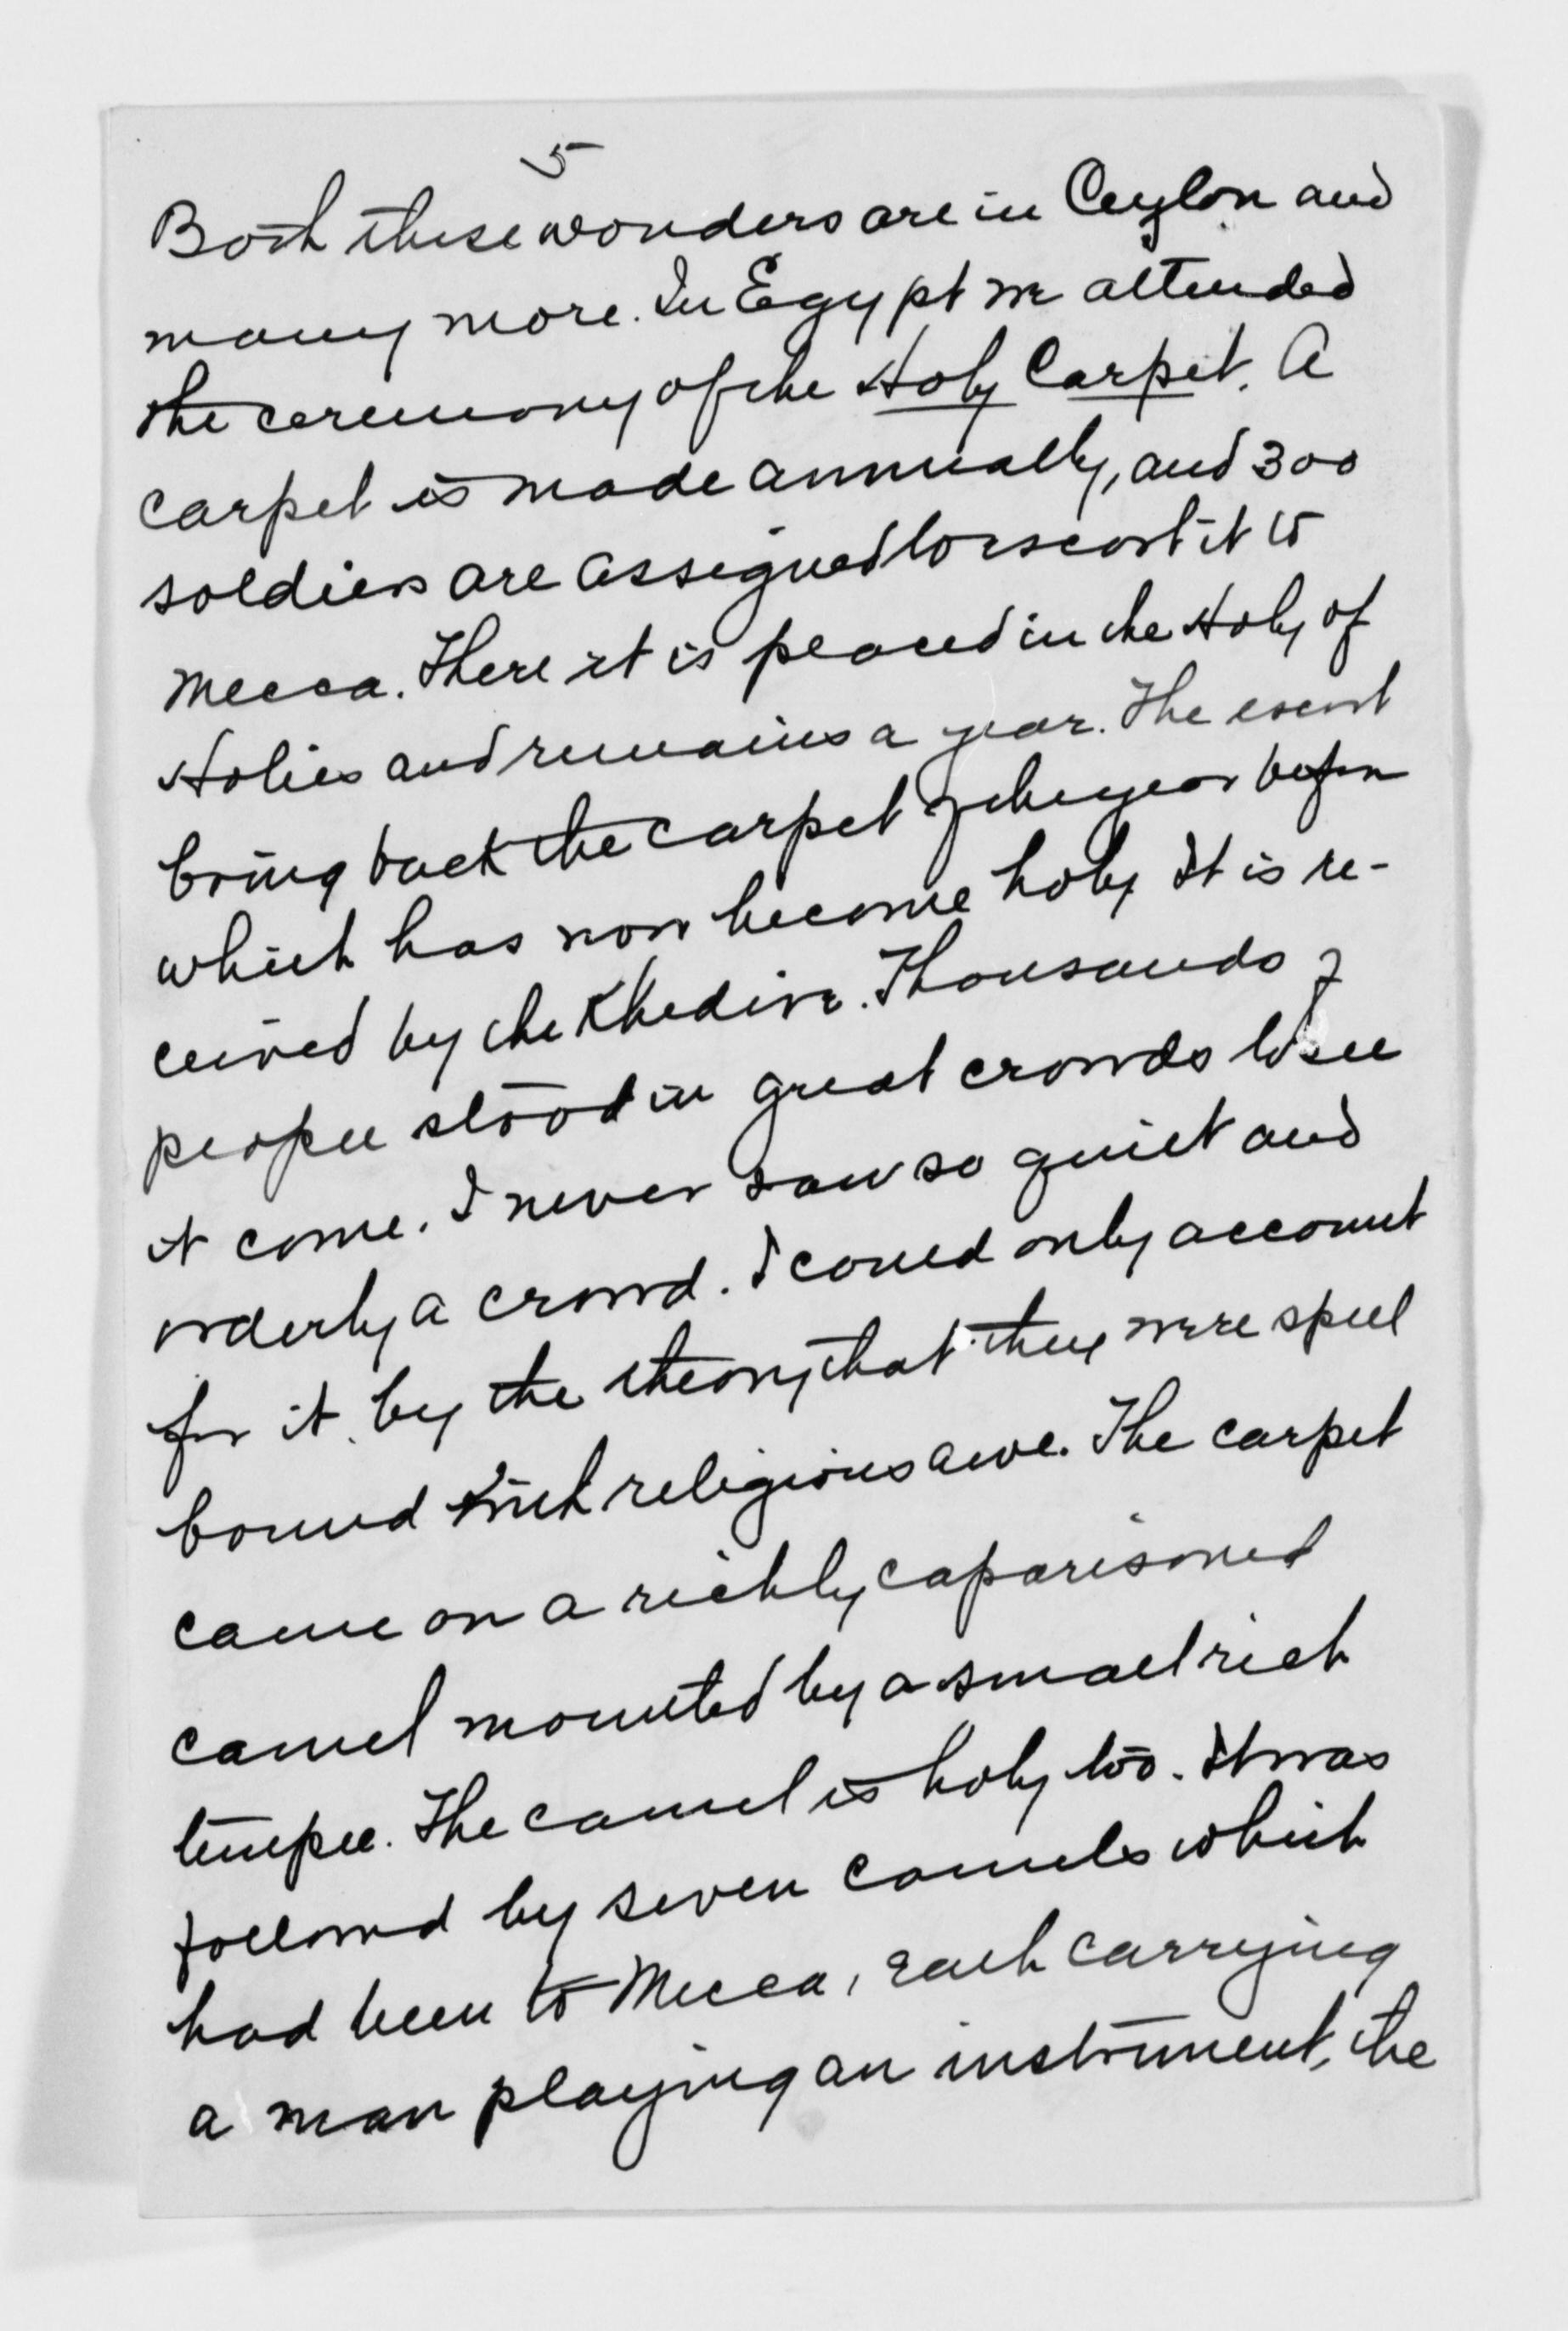 5
Both these wonders are in Ceylon and
many more. In Egypt we attended
the ceremony of the Holy Carpet. A
carpet is made annually, and 300
soldiers are assigned to escort it to
Mecca. There it is placed in the Holy of
Holies and remains a year. The escort
bring back the carpet of the year before
which has now become holy. It is re-
ceived by the Khedive. Thousands of
people stood in great crowds to see
it come. I never saw so quiet and
orderly a crowd. I could only account
for it by the theory that they were spell
bound with religious awe. The carpet
came on a richly caparisoned
camel mounted by a small rich
temple. The camel is holy too. It was
followed by seven camels which
had been to Mecca, each carrying
a man playing an instrument, the